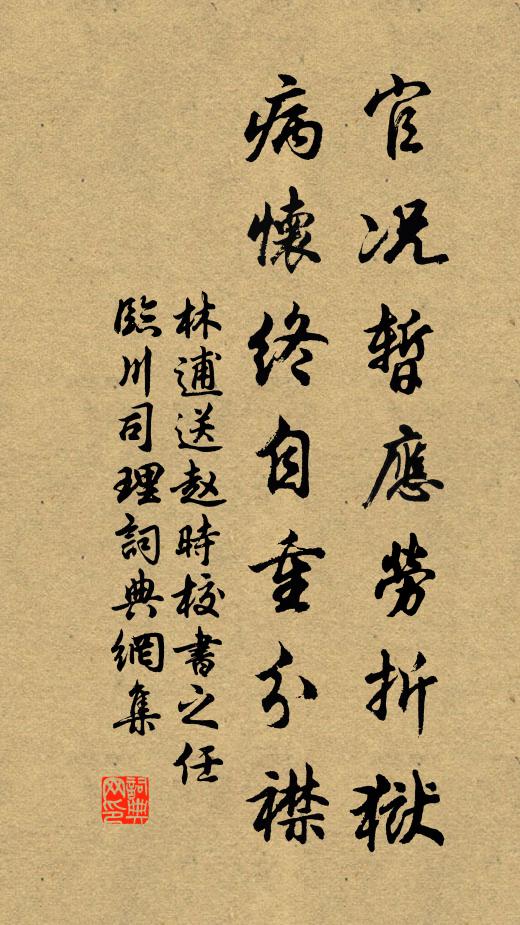 官况暫應勞折獄
病懷終自重分襟
林逋送赵時校書之任
臨川司理詞典網集
詞典网印